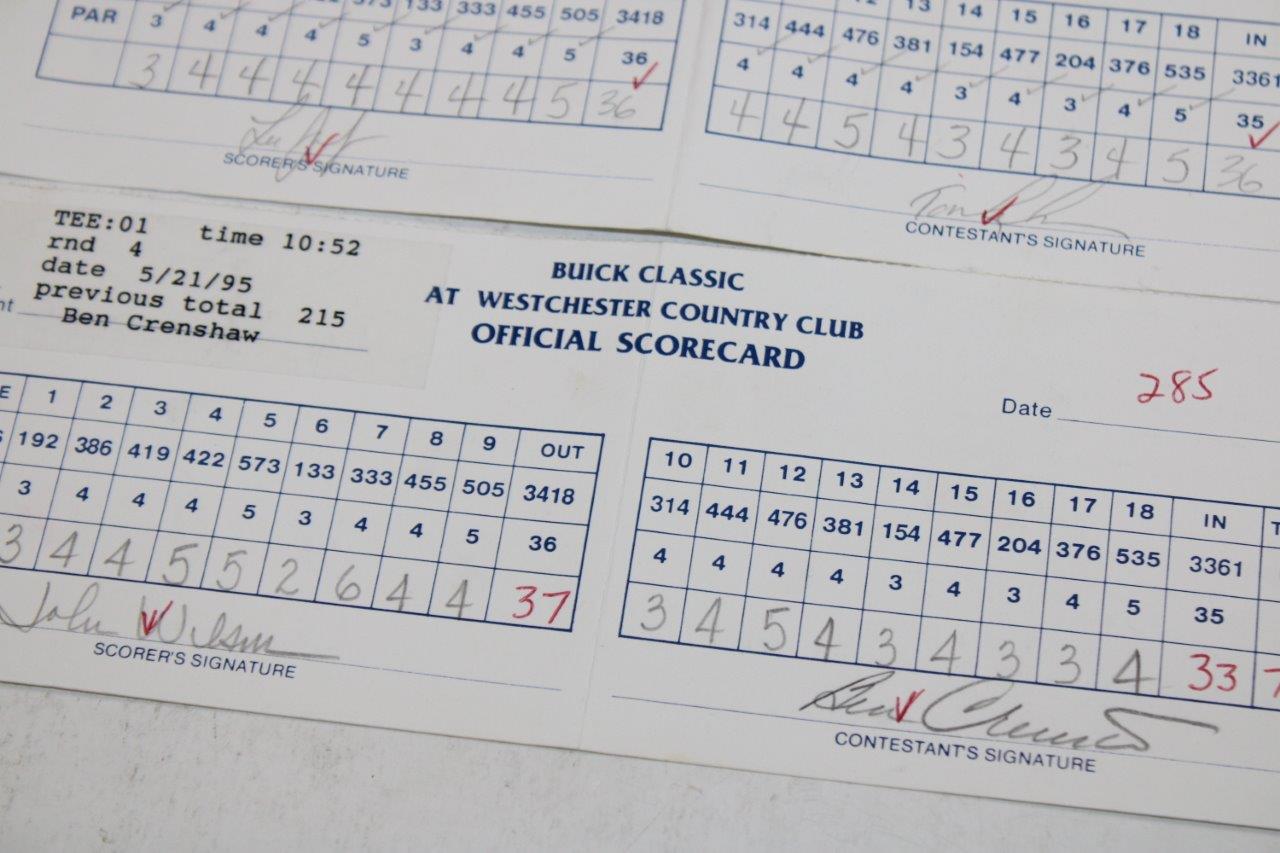 573 133 333 455 505 3418
PAR 3 4 4 4 5 3 4 4 5 36
3 4 4 4 4 4 4 4 5 36
SCORER'S SIGNATURE
13 14 15 16 17 18 IN
314 444 476 381 154 477 204 376 535 3361
4 4 4 4 3 4 3 4 5 35
4 4 5 4 3 4 3 4 5 36
CONTESTANT'S SIGNATURE
TEE:01 time 10:52
rnd 4
date 5/21/95
previous total 215
Ben Crenshaw
BUICK CLASSIC
AT WESTCHESTER COUNTRY CLUB
OFFICIAL SCORECARD
285
Date
1 2 3 4 5 6 7 8 9 OUT
192 386 419 422 573 133 333 455 505 3418
3 4 4 4 5 3 4 4 5 36
3 4 4 5 5 2 6 4 4 37
John Wilson
SCORER'S SIGNATURE
10 11 12 13 14 15 16 17 18 IN
314 444 476 381 154 477 204 376 535 3361
4 4 4 4 3 4 3 4 5 35
3 4 5 4 3 4 3 3 4 33
Ben Crenshaw
CONTESTANT'S SIGNATURE